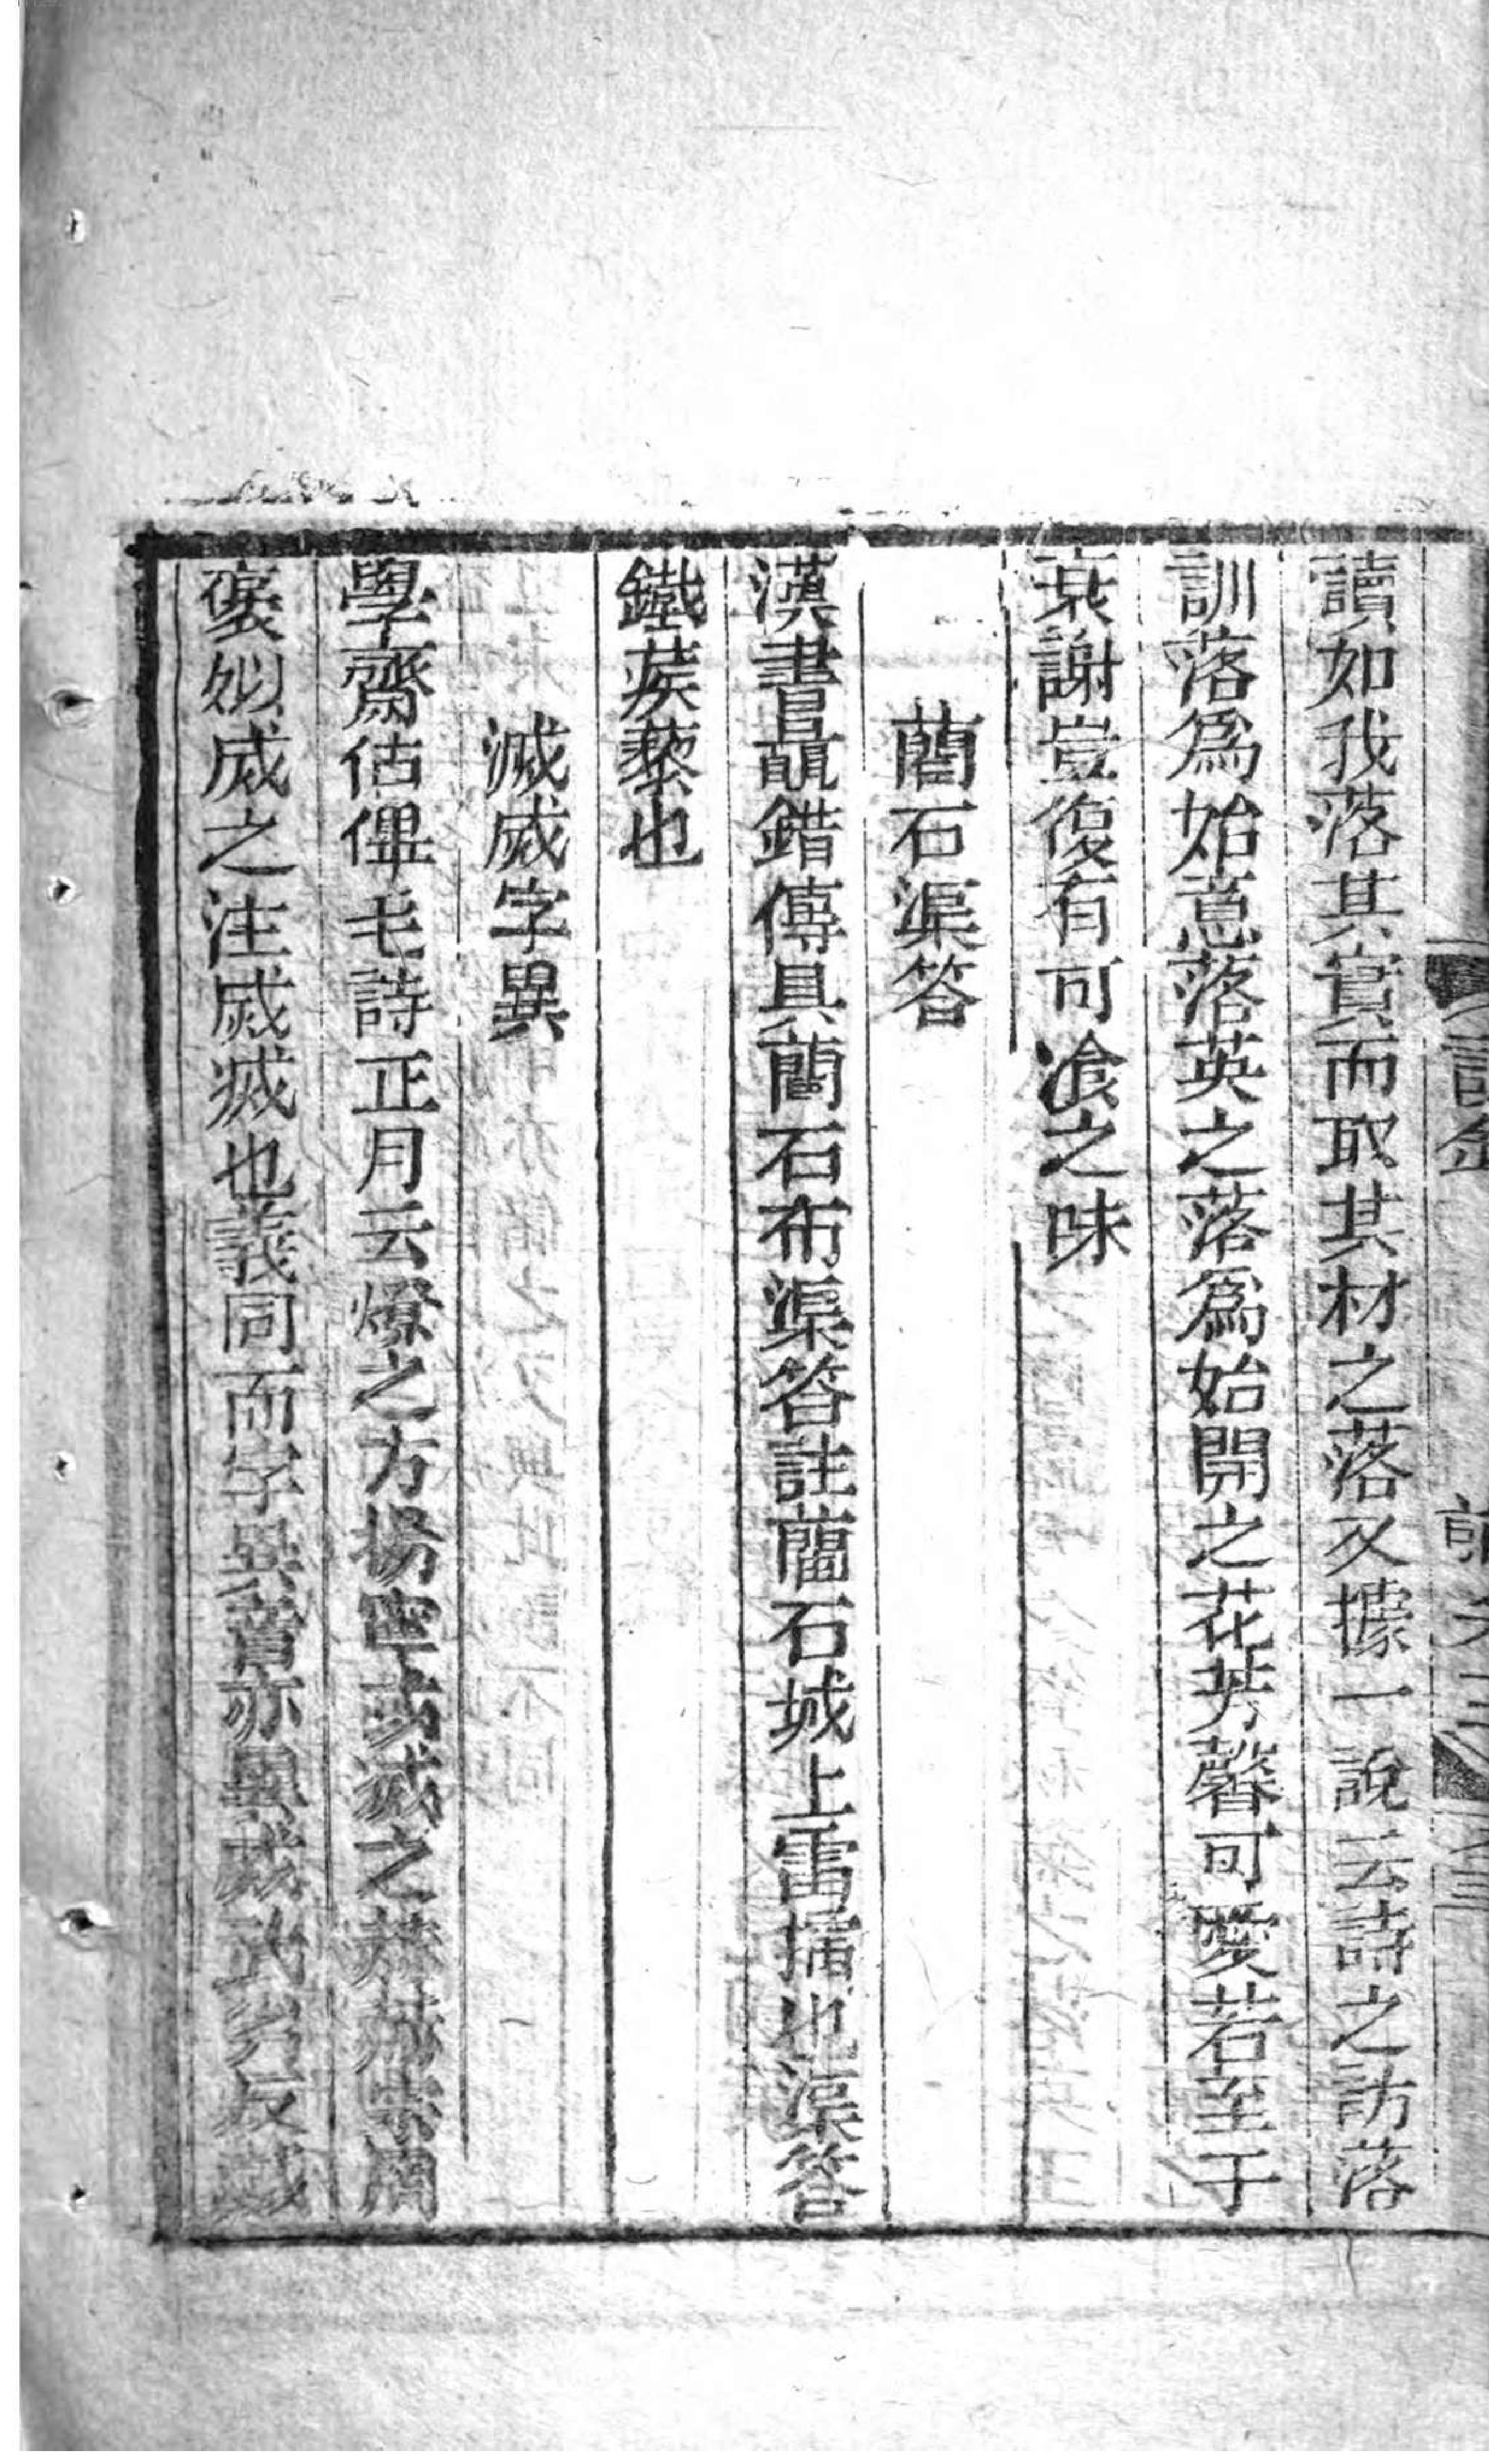 讀如我落其實而取其材之落又據一說云詩之訪落
訓落爲始意落英之落爲始開之花芳馨可愛若至于
衰謝豈復有可飡之味
藺石渠答
漢書鼂錯傳具藺石布渠答註藺石城上雷揣也渠答
鐵蒺藜也
滅烕字異
學齋佔俾毛詩正月云燎之方揚寧或滅之赫赫宗周
褒姒烕之注烕滅也義同而字異音亦異烕武劣反